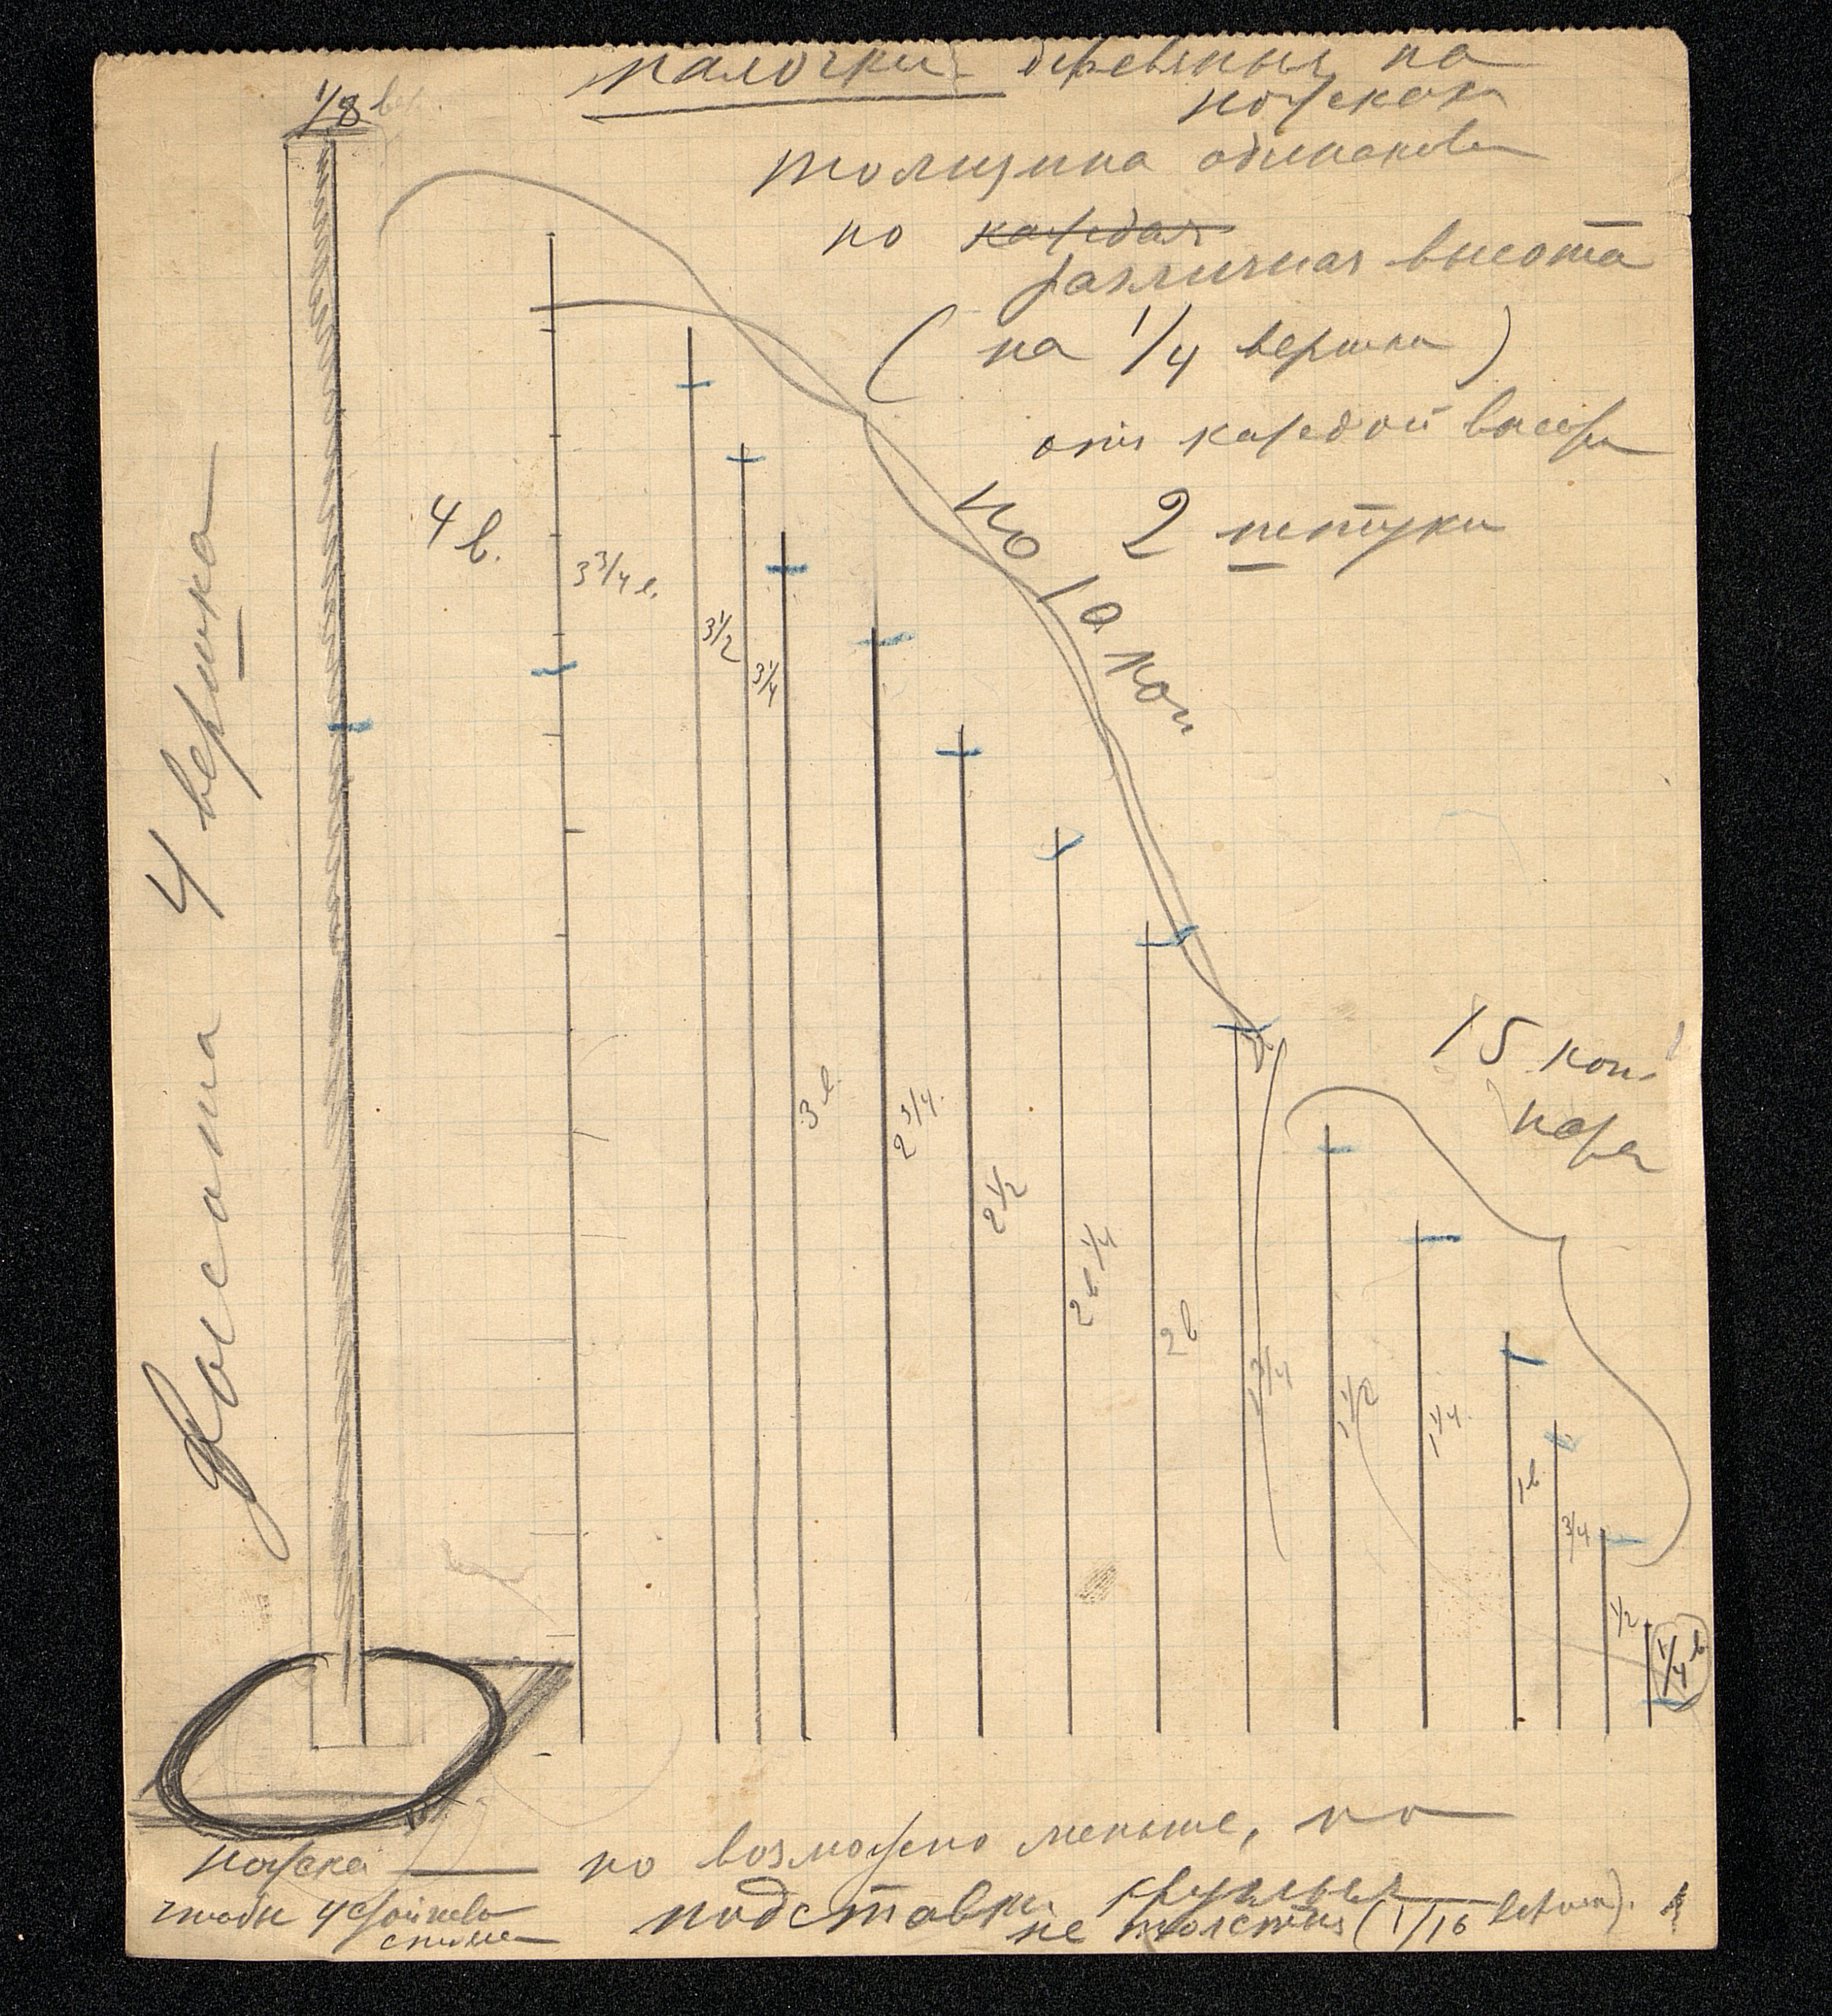 палочки деревяныя на
ножках
толщина одинакова
но каждая
различная высота
(на 1/4 вершка)
отъ каждой высоты
2 штуки
1/8 вер.
Высота 4 вершка
4 в.
3 3/4 в.
3 1/2
3 1/4
3 в.
2 3/4.
2 1/2
2 в 1/4
2 в
1 3/4
1 1/2
1 1/4.
1 в
3/4
1/2
1/4 в
по 10 коп
15 коп
пара
ножка — по возможно меньше, но
чтобы устойчиво
стояла
подставки круглыя
не толстыя (1/16 вершка).